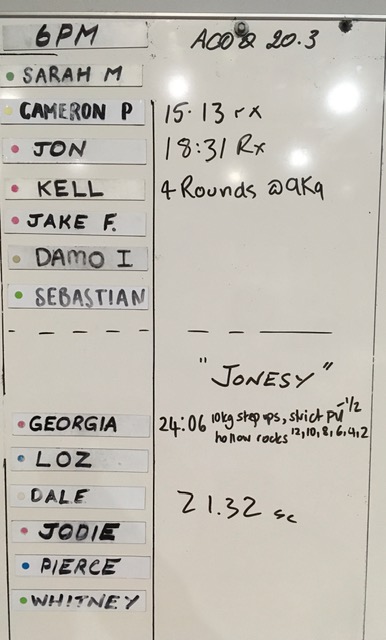 6PM
SARAH M
CAMERON P 15.13 rx
JON 18:31 Rx
KELL 4 Rounds @9Kg
JAKE F.
DAMO I
SEBASTIAN
"JONESY"
GEORGIA 24:06 10kg step ups, strict PU -1/2
hollow rocks 12,10,8,6,4,2
LOZ
DALE 21.32 sc
JODIE
PIERCE
WHITNEY